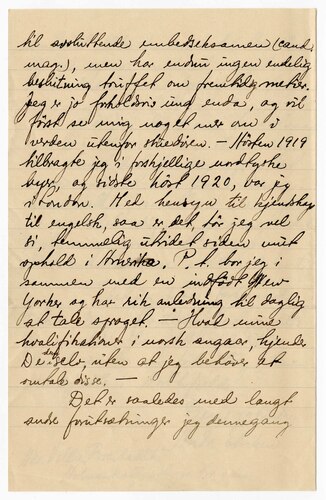 til avsluttende embedseksamen (cand.
mag.), men har endnu ingen endelig
beslutning truffet om fremtidig metier.
Jeg er jo forholdsvis ung enda, og vil
først se mig noget mer om i
verden utenfor studiene. — Høsten 1919
tilbragte jeg i forskjellige nordtyske
byer, og sidste høst 1920, var jeg
i London. Med hensyn til kjendskap
til engelsk, saa er det, tør jeg vel
si, temmelig utvidet siden mit
ophold i Amerika. P. t. bor jeg i
sammen med en indfødt New
Yorker og har rik anledning til daglig
at tale sproget. — Hvad mine
kvalifikationer i norsk angaar, kjender
De dem selv, uten at jeg behøver at
omtale disse. —
Det er saaledes med langt
andre forutsætninger jeg dennegang